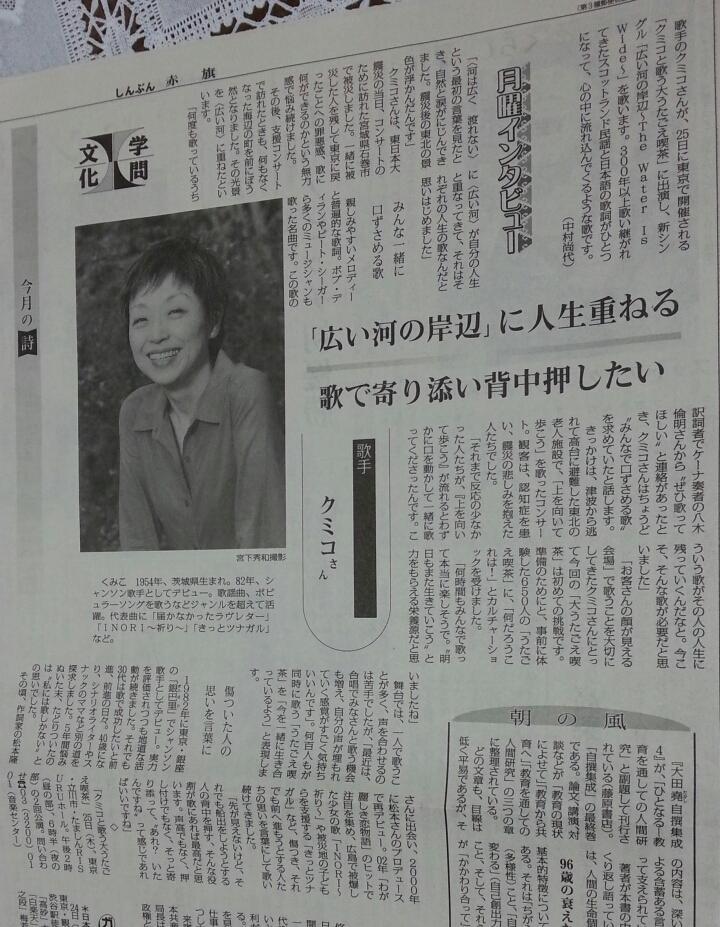 しんぶん 赤旗
月曜インタビュー
歌手のクミコさんが、25日に東京で開催される
「クミコと歌う大うたごえ喫茶」に出演し、新シン
グル「広い河の岸辺〜The Water Is
Wide〜」を歌います。300年以上歌い継がれ
てきたスコットランド民謡と日本語の歌詞がひとつ
になって、心の中に流れ込んでくるような歌です。
（中村尚代）
「広い河の岸辺」に人生重ねる
歌で寄り添い背中押したい
歌手
クミコさん
学問
文化
〈河は広く 渡れない〉
という最初の言葉を見たと
き、自然と涙がにじんでき
ました。震災後の東北の景
色が浮かんだんです」
クミコさんは、東日本大
震災の当日、コンサートの
ために訪れた宮城県石巻市
で被災しました。一緒に被
災した人を残して東京に戻
ったことへの罪悪感、歌に
何ができるのかという無力
感で悩み続けました。
その後、支援コンサート
で訪れたときも、何もなく
なった海辺の町を前にぼう
然となりました。その光景
を〈広い河〉に重ねたとい
います。
「何度も歌っているうち
に〈広い河〉が自分の人生
と重なってきて、それはそ
れぞれの人生の歌なんだと
思いはじめました」
みんな一緒に
口ずさめる歌
親しみやすいメロディー
と普遍的な歌詞。ボブ・デ
ィランやピート・シーガー
ら多くのミュージシャンも
歌った名曲です。この歌の
訳詞者でケーナ奏者の八木
倫明さんから〝ぜひ歌って
ほしい〟と連絡があったと
き、クミコさんはちょうど
〝みんなで口ずさめる歌〟
を求めていたと話します。
きっかけは、津波から逃
れて高台に避難した東北の
老人施設で、「上を向いて
歩こう」を歌ったコンサー
ト。観客は、認知症を患
い、震災の悲しみを抱えた
人たちでした。
「それまで反応の少なか
った人たちが、『上を向い
て歩こう』が流れるとわず
かに口を動かして一緒に歌
ってくださったんです。こ
ういう歌がその人の人生に
残っていくんだなと。今こ
そ、そんな歌が必要だと思
いました」
「お客さんの顔が見える
会場」で歌うことを大切に
してきたクミコさんにとっ
て今回の「大うたごえ喫
茶」は初めての挑戦です。
準備のためにと、事前に体
験した650人の「うたご
え喫茶」に、「何だろうこ
れは！」とカルチャーショ
ックを受けました。
「何時間もみんなで歌っ
て本当に楽しそうで。〝明
日もまた生きていこう〟と
力をもらえる栄養源だと思
いましたね」
舞台では、一人で歌うこ
とが多く、声を合わせるの
は苦手でしたが、「最近は、
合唱でみなさんと歌う機会
も増え、自分の声が埋もれ
ていく感覚がすごく気持ち
いいんです。何百人もが
同時に歌う『うたごえ喫
茶』を〝今を一緒に生き合
っているよう〟と表現しま
す。
傷ついた人の
思いを言葉に
1982年に東京・銀座
の「銀巴里」でシャンソン
歌手としてデビュー。実力
を評価されつつも地道な活
動が続きました。それでも
30代は歌で成功したいと前
進、前進の日々。40歳にな
り、シナリオライターやス
ナックのママなど別の道を
探求しました。5年間悩み
ぬいた末、たどりついたの
は〝私には歌しかない〟と
の思いでした。
その頃、作詞家の松本隆
さんに出会い、2000年
に松本さんのプロデュース
で再デビュー。02年「わが
麗しき恋物語」のヒットで
注目を集め、広島で被爆し
た少女の歌「INORI〜
祈り〜」や被災地の子ども
らを支援する「きっとツナ
ガル」など、傷つき、それ
でも前へ進もうとする人た
ちの思いを言葉にして歌い
続けてきました。
「先が見えないけど、そ
れでも船出をしようとする
人の背中を押す、そんな役
割が歌にあれば最高だと思
います。声高でもなく、押
し付けでもなく、そっと寄
り添って、『あれっ、いた
んですか』って感じであれ
ばいいですね」
◇
「クミコと歌う大うたご
え喫茶」 25日（木）、東京
・立川市・たましんRIS
URUホール。午後2時
（昼の部）、6時半（夜の
部）の2回公演。問い合わ
せ☎03（
01（音楽センター）
宮下秀和撮影
くみこ 1954年、茨城県生まれ。82年、シ
ャンソン歌手としてデビュー。歌謡曲、ポピ
ュラーソングを歌うなどジャンルを超えて活
躍。代表曲に「届かなかったラヴレター」
「INORI〜祈り〜」「きっとツナガル」
など。
今月の詩
朝の風
『大田堯自撰集成
4』が、「ひとなる―教
育を通しての人間研
究」と副題して刊行さ
れている（藤原書店）。
「自撰集成」の最終巻
である。論文、講演、対
談などが「教育の現状
によせて」「教育から共
育へ」「教育を通しての
人間研究」の三つの章
に整理されている。
どの文章も、目線は
低く平易であるが、そ
の内容は、深い
よる含蓄ある言
って支えられてい
著者が本書の中
くり返し語ってい
は、人間の生命個
基本的特徴について
ある。それは「ちが
（多様性）こと、「自
変わる」（自己創出力
こと、そして、それ
が「かかわり合って」
96歳の衰えた